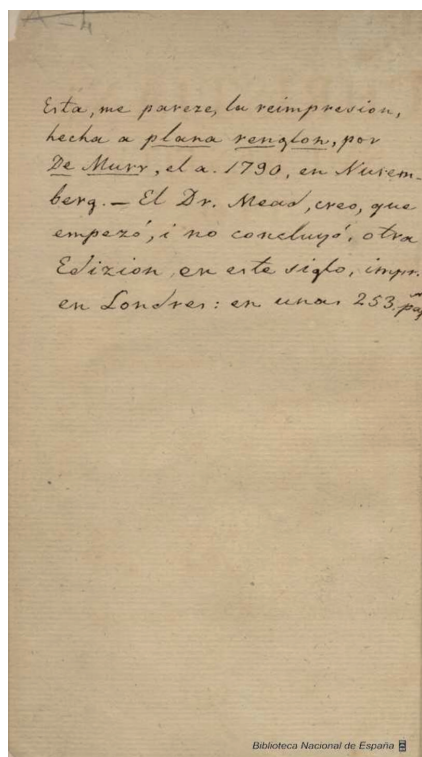 A-4
Esta, me pareze, la reimpresion,
hecha a plana renglon, por
De Murr, el a. 1790, en Nurem-
berg. — El Dr. Mead, creo, que
empezó, i no concluyó, otra
Edizion, en este siglo, impr.
en Londres: en unas 253. pag
Biblioteca Nacional de España